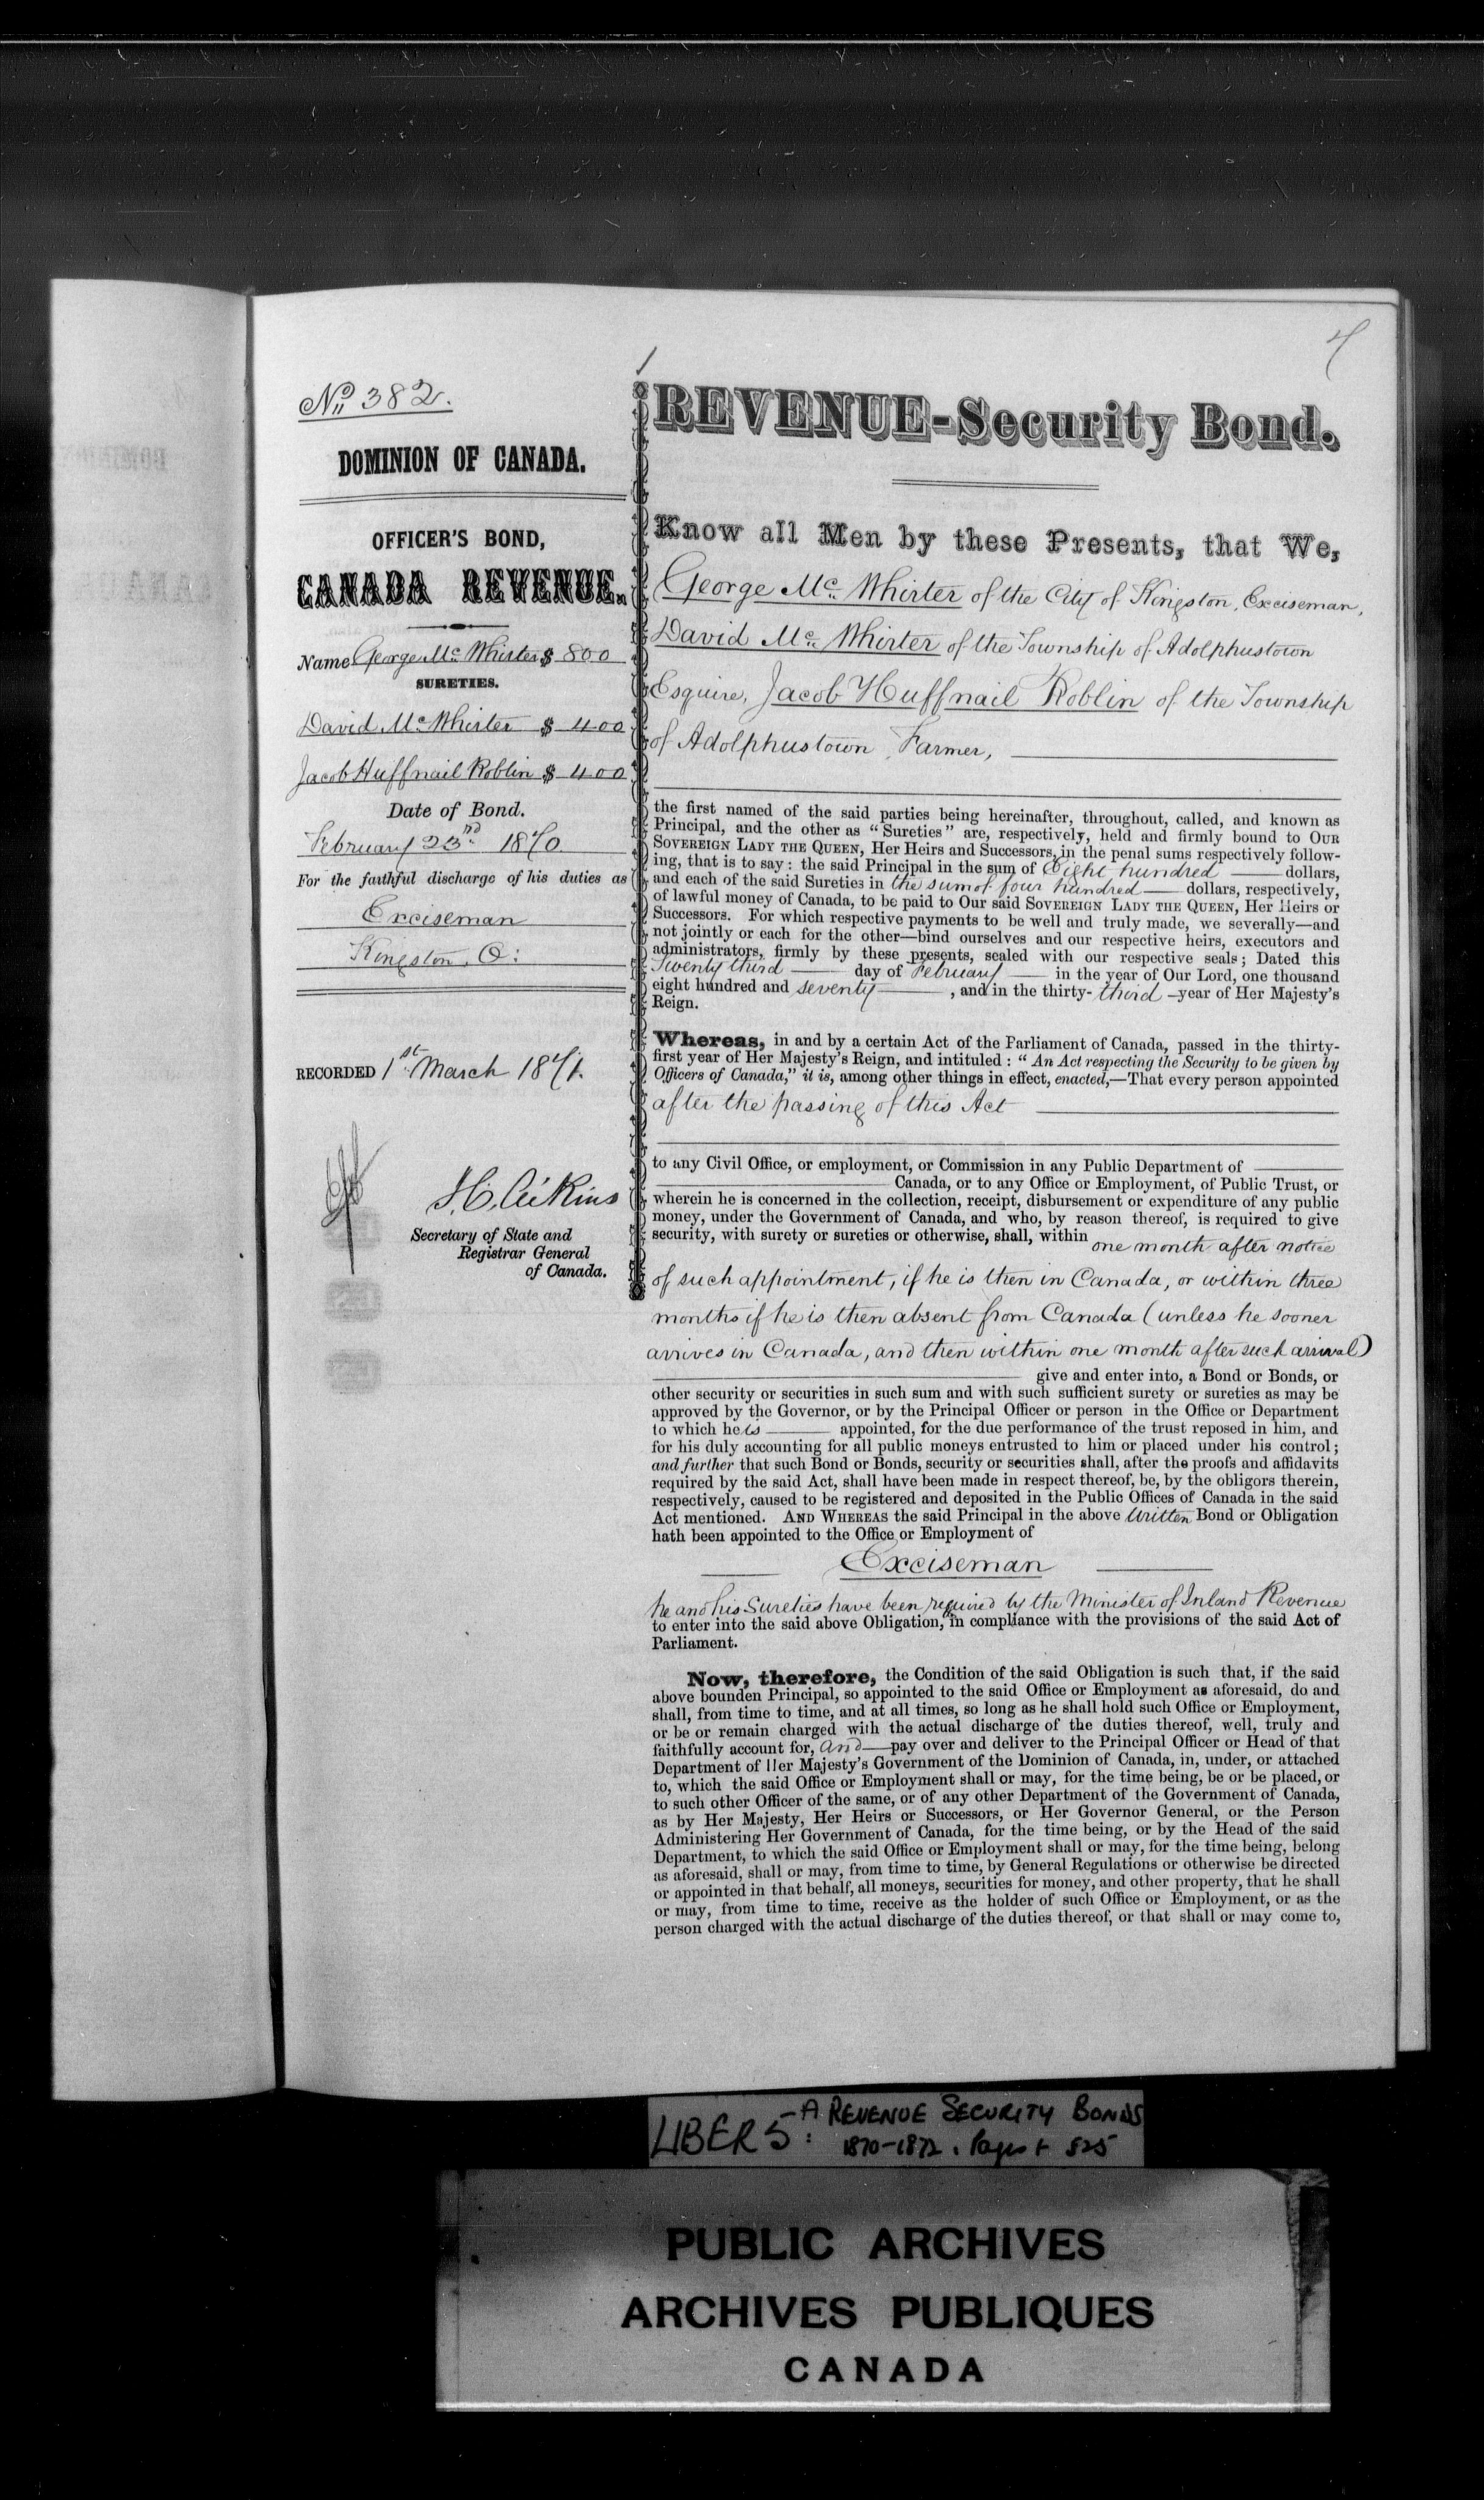 4
No 382.
DOMINION OF CANADA.
OFFICER'S BOND,
CANADA REVENUE.
Name George Mc Whirter $ 800
SURETIES.
David Mc Whirter $ 400
Jacob Huffnail Roblin $ 400
Date of Bond.
February 23rd 1870
For the faithful discharge of his duties as
Exciseman
Kingston, O:
RECORDED 1st March 1871.
J.C. Aikins
Secretary of State and
Registrar General
of Canada.
REVENUE-Security Bond.
Know all Men by these Presents, that We,
George Mc Whirter of the City of Kingston, Exciseman,
David Mc Whirter of the Township of Adolphustown
Esquire, Jacob Huffnail Roblin of the Township
of Adolphustown, Farmer,
the first named of the said parties being hereinafter, throughout, called, and known as
Principal, and the other as "Sureties" are, respectively, held and firmly bound to OUR
SOVEREIGN LADY THE QUEEN, Her Heirs and Successors, in the penal sums respectively follow-
ing, that is to say: the said Principal in the sum of Eight hundred dollars,
and each of the said Sureties in the sum of four hundred dollars, respectively,
of lawful money of Canada, to be paid to Our said SOVEREIGN LADY THE QUEEN, Her Heirs or
Successors. For which respective payments to be well and truly made, we severally—and
not jointly or each for the other—bind ourselves and our respective heirs, executors and
administrators, firmly by these presents, sealed with our respective seals; Dated this
Twenty third day of February in the year of Our Lord, one thousand
eight hundred and seventy, and in the thirty-third year of Her Majesty's
Reign.
Whereas, in and by a certain Act of the Parliament of Canada, passed in the thirty-
first year of Her Majesty's Reign, and intituled: "An Act respecting the Security to be given by
Officers of Canada," it is, among other things in effect, enacted,—That every person appointed
after the passing of this Act
to any Civil Office, or employment, or Commission in any Public Department of
Canada, or to any Office or Employment, of Public Trust, or
wherein he is concerned in the collection, receipt, disbursement or expenditure of any public
money, under the Government of Canada, and who, by reason thereof, is required to give
security, with surety or sureties or otherwise, shall, within one month after notice
of such appointment, if he is then in Canada, or within three
months if he is then absent from Canada (unless he sooner
arrives in Canada, and then within one month after such arrival)
give and enter into, a Bond or Bonds, or
other security or securities in such sum and with such sufficient surety or sureties as may be
approved by the Governor, or by the Principal Officer or person in the Office or Department
to which he is appointed, for the due performance of the trust reposed in him, and
for his duly accounting for all public moneys entrusted to him or placed under his control;
and further that such Bond or Bonds, security or securities shall, after the proofs and affidavits
required by the said Act, shall have been made in respect thereof, be, by the obligors therein,
respectively, caused to be registered and deposited in the Public Offices of Canada in the said
Act mentioned. AND WHEREAS the said Principal in the above Written Bond or Obligation
hath been appointed to the Office or Employment of
Exciseman
he and his Sureties have been required by the Minister of Inland Revenue
to enter into the said above Obligation, in compliance with the provisions of the said Act of
Parliament.
Now, therefore, the Condition of the said Obligation is such that, if the said
above bounden Principal, so appointed to the said Office or Employment as aforesaid, do and
shall, from time to time, and at all times, so long as he shall hold such Office or Employment,
or be or remain charged with the actual discharge of the duties thereof, well, truly and
faithfully account for, and pay over and deliver to the Principal Officer or Head of that
Department of Her Majesty's Government of the Dominion of Canada, in, under, or attached
to, which the said Office or Employment shall or may, for the time being, be or be placed, or
to such other Officer of the same, or of any other Department of the Government of Canada,
as by Her Majesty, Her Heirs or Successors, or Her Governor General, or the Person
Administering Her Government of Canada, for the time being, or by the Head of the said
Department, to which the said Office or Employment shall or may, for the time being, belong
as aforesaid, shall or may, from time to time, by General Regulations or otherwise be directed
or appointed in that behalf, all moneys, securities for money, and other property, that he shall
or may, from time to time, receive as the holder of such Office or Employment, or as the
person charged with the actual discharge of the duties thereof, or that shall or may come to,
LIBER 5: -A REVENUE SECURITY BONDS
1870-1872. Pages 1- 525
PUBLIC ARCHIVES
ARCHIVES PUBLIQUES
CANADA